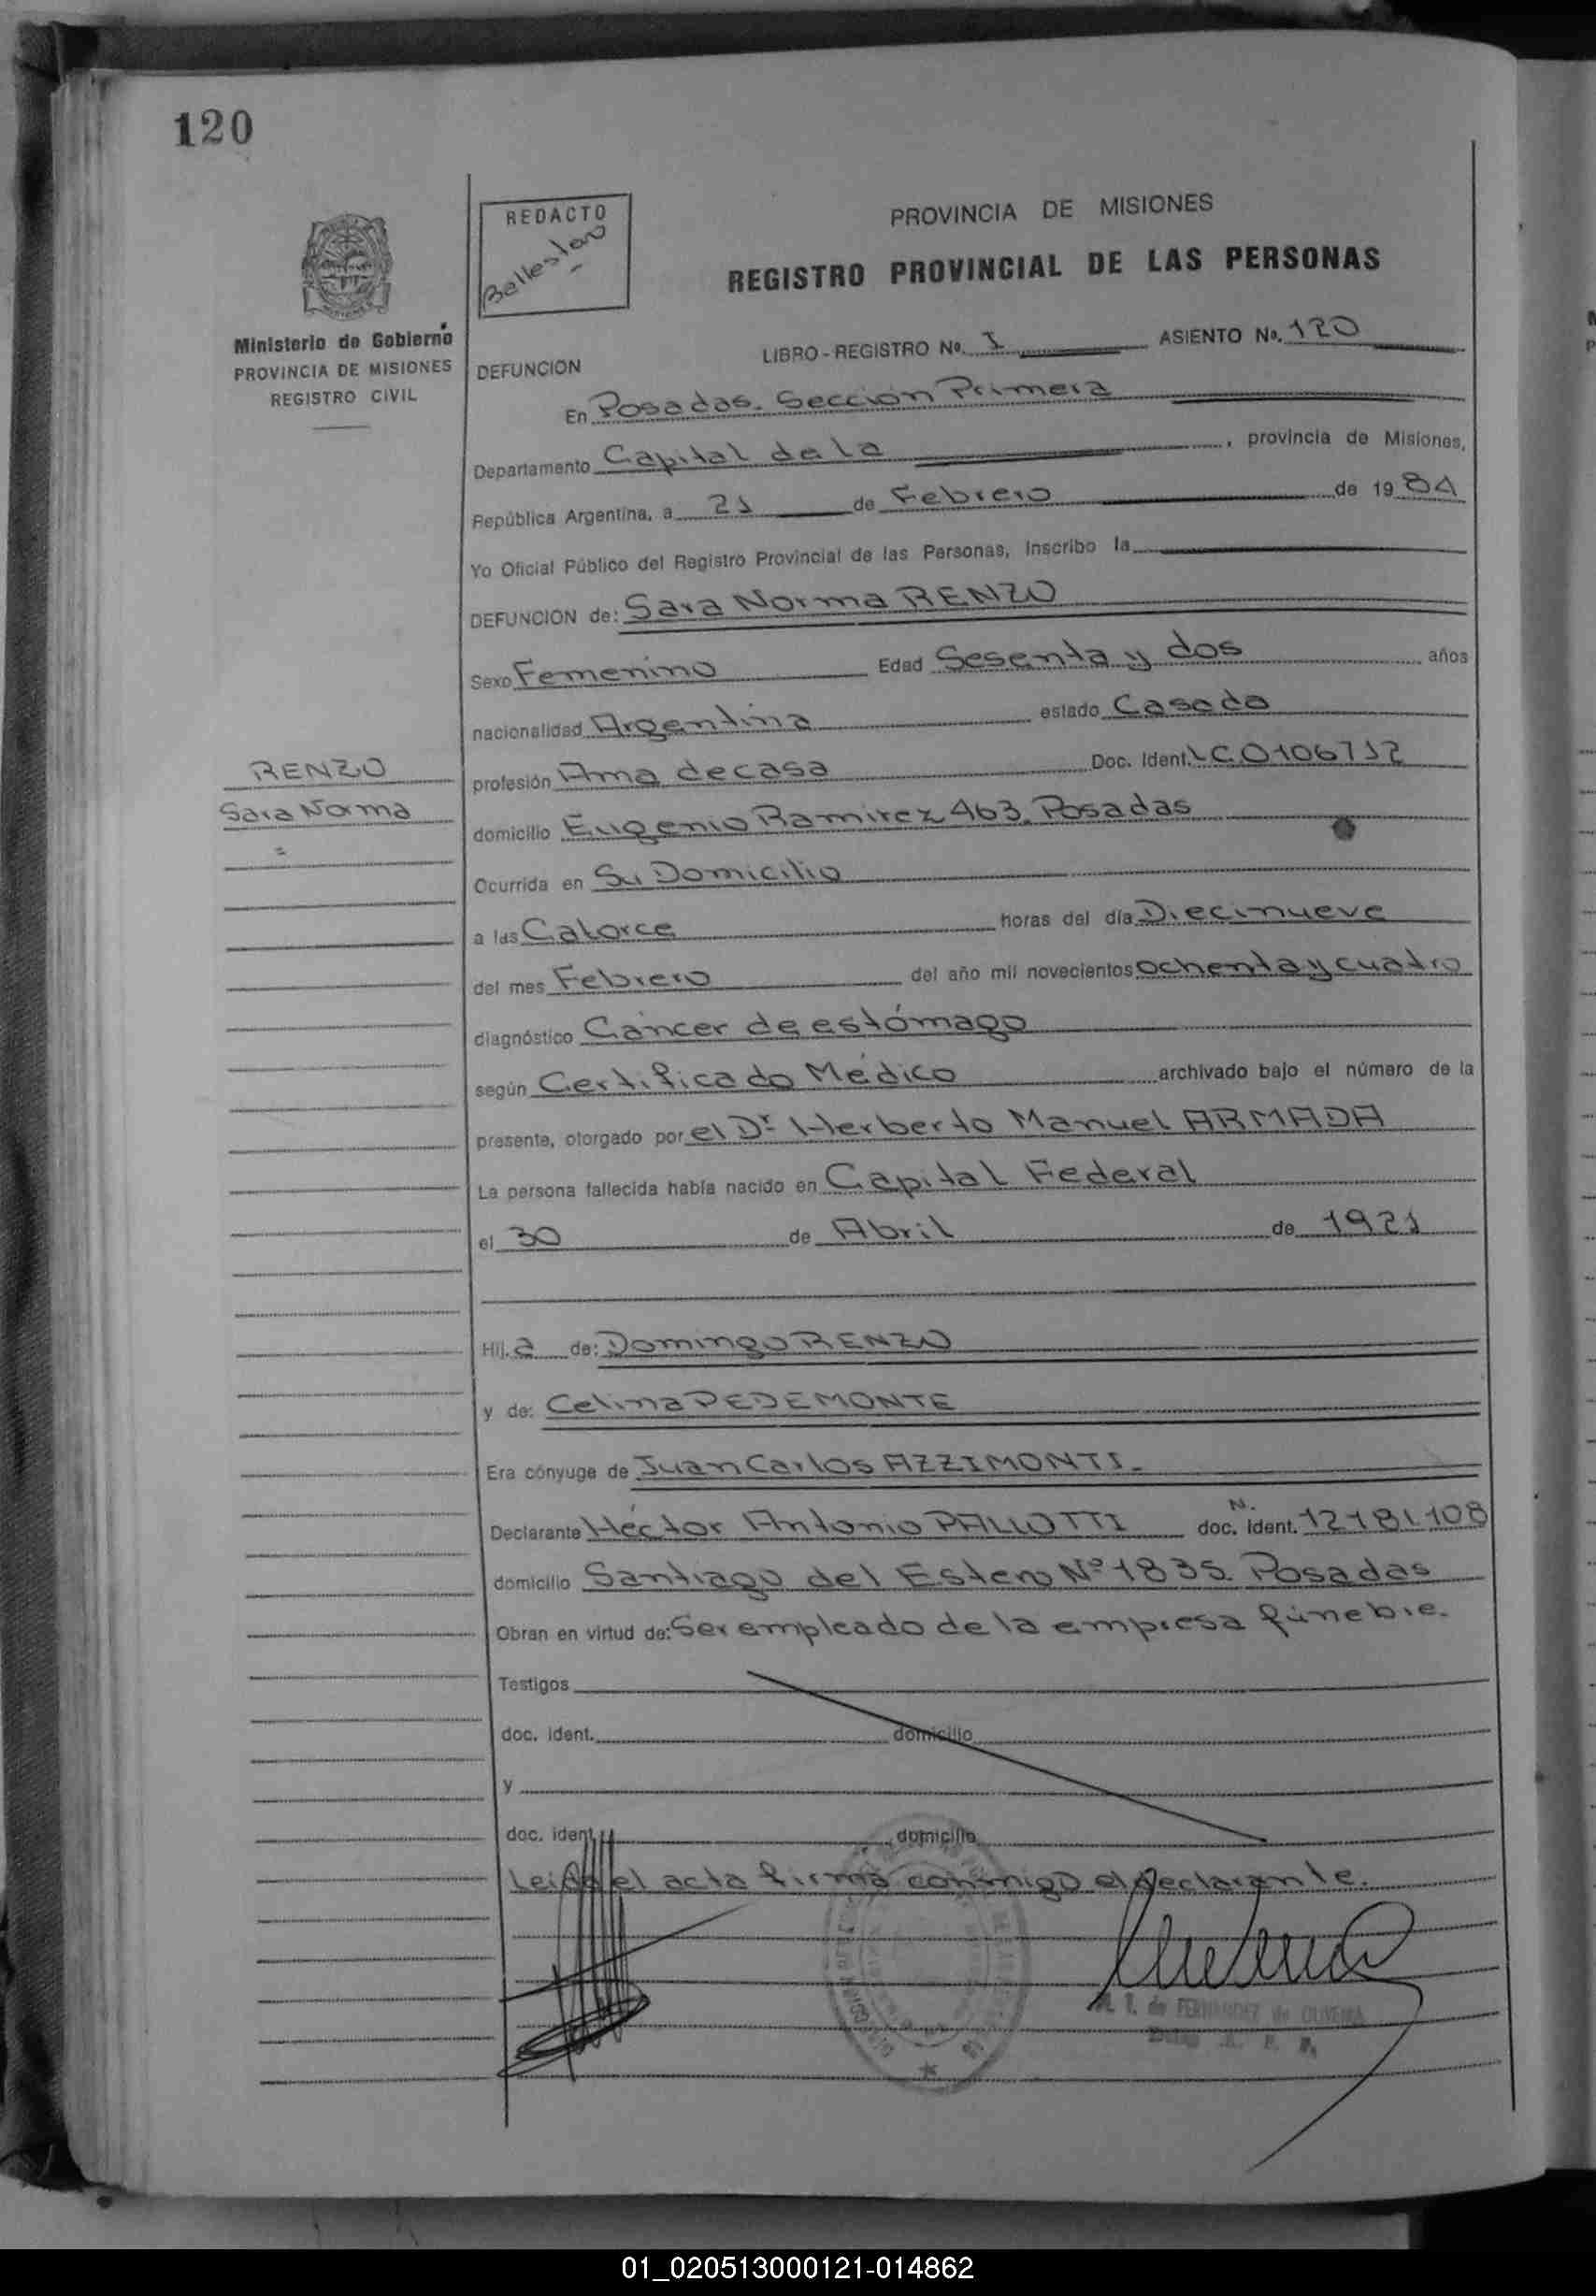 120
REDACTO
PROVINCIA DE MISIONES
REGISTRO PROVINCIAL DE LAS PERSONAS
Ministerio de Gobierno
PROVINCIA DE MISIONES
REGISTRO CIVIL
LIBRO - REGISTRO Nº. I ASIENTO Nº. 120
DEFUNCION
En Posadas. Sección Primera
Departamento Capital de la , provincia de Misiones,
República Argentina, a 21 de Febrero de 1984
Yo Oficial Público del Registro Provincial de las Personas, Inscribo la
DEFUNCION de: Sara Norma RENZO
Sexo Femenino Edad Sesenta y dos años
nacionalidad Argentina estado Casada
RENZO
Sara Norma
profesión Ama de casa Doc. Ident. LC 0106712
domicilio Eugenio Ramirez 463. Posadas
Ocurrida en Su Domicilio
a las Catorce horas del día Diecinueve
del mes Febrero del año mil novecientos ochenta y cuatro
diagnóstico Cáncer de estómago
según Certificado Médico archivado bajo el número de la
presente, otorgado por el Dr. Herberto Manuel ARMADA
La persona fallecida había nacido en Capital Federal
el 30 de Abril de 1921
Hij.a de: Domingo RENZO
y de: Celina PEDEMONTE
Era cónyuge de Juan Carlos AZZIMONTI.
Declarante Héctor Antonio PALLOTTI doc. ident. N. 12.181.108
domicilio Santiago del Estero Nº 1835. Posadas
Obran en virtud de: Ser empleado de la empresa fúnebre.
Testigos
doc. ident. domicilio
y
doc. ident. domicilio
Leida el acta firma conmigo el declarante.
de FERNANDEZ de OLIVEIRA
01_020513000121-014862